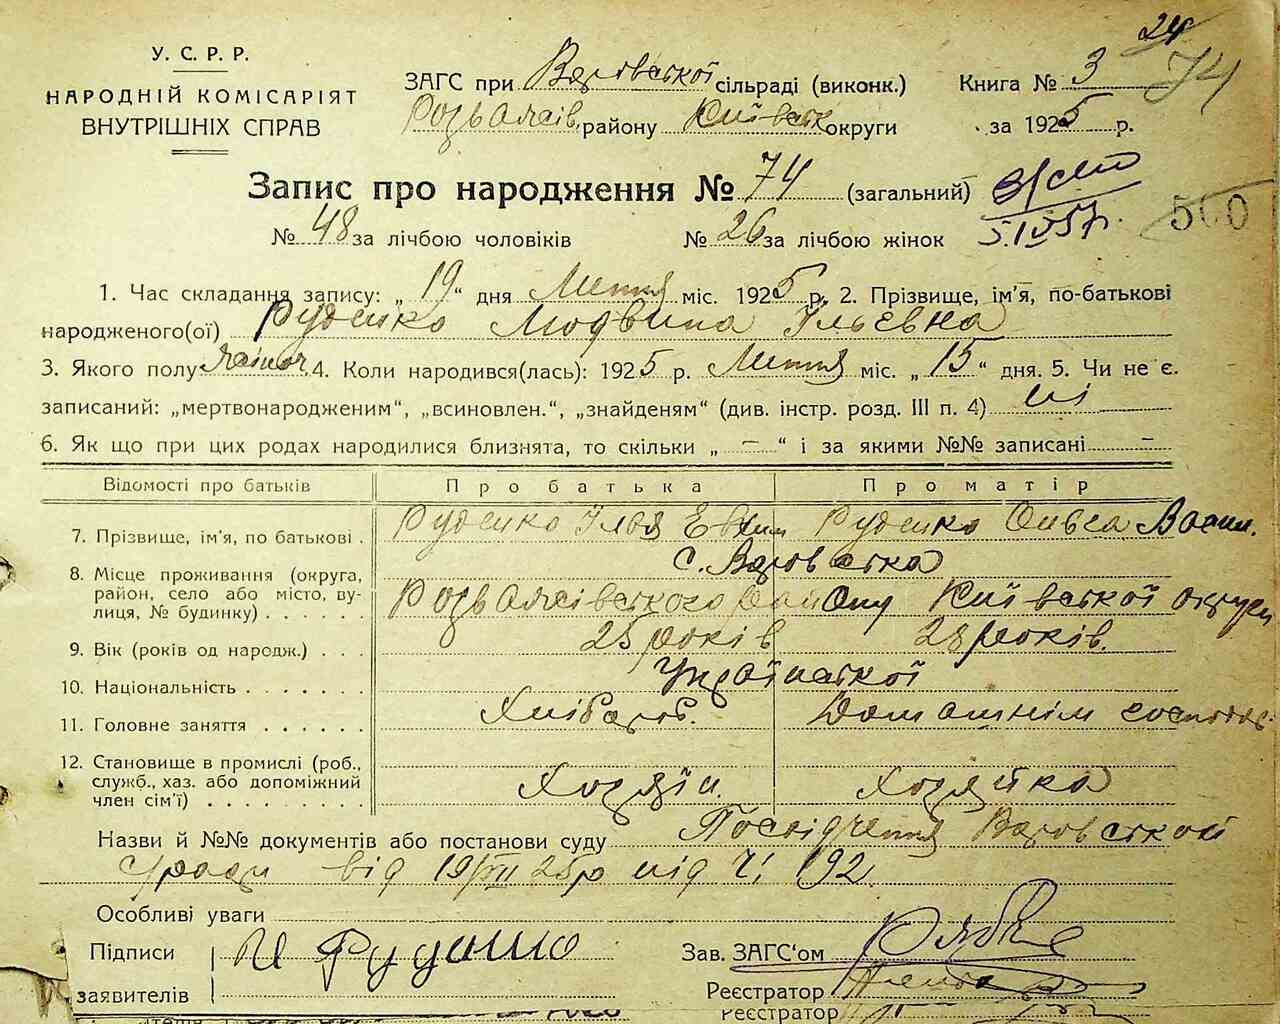 У. С. Р. Р.
НАРОДНІЙ КОМІСАРІЯТ
ВНУТРІШНІХ СПРАВ
ЗАГС при Вязівської сільраді (виконк.)
Розважнів. району Київськ округи
Книга № 3
за 1925 р.
24
74
Запис про народження № 74 (загальний)
№ 48 за лічбою чоловіків № 26 за лічбою жінок
500
1. Час складання запису: „ 19 “ дня Липня міс. 1925 р. 2. Прізвище, ім'я, по-батькові
народженого(ої) Руденко Людвина Ільєвна
3. Якого полу жіноч. 4. Коли народився(лась): 1925 р. Липня міс. „ 15 “ дня. 5. Чи не є.
записаний: „мертвонародженим“, „всиновлен.“, „знайденям“ (див. інстр. розд. III п. 4) ні
6. Як що при цих родах народилися близнята, то скільки „ — “ і за якими №№ записані —
Відомості про батьків Про батька Про матір
7. Прізвище, ім'я, по батькові . Руденко Ілья Евхим Руденко Ольга Васил.
8. Місце проживання (округа, район, село або місто, вулиця, № будинку) . . . . . .
Розважівського району Київської округи
9. Вік (років од народж.) . . . 25 років 28 років.
10. Національність . . . . . . . Української
11. Головне заняття . . . . . . Хлібороб. Домашнім господар.
12. Становище в промислі (роб., служб., хаз. або допоміжний член сім'ї) . . . . . . . . . Хозяїн. Хозяйка
Назви й №№ документів або постанови суду Посвідчення
від 19/VII 25 р під Ч. 192.
Особливі уваги
Підписи И Руденко
заявителів
Зав. ЗАГС'ом
Реєстратор
Реєстратор